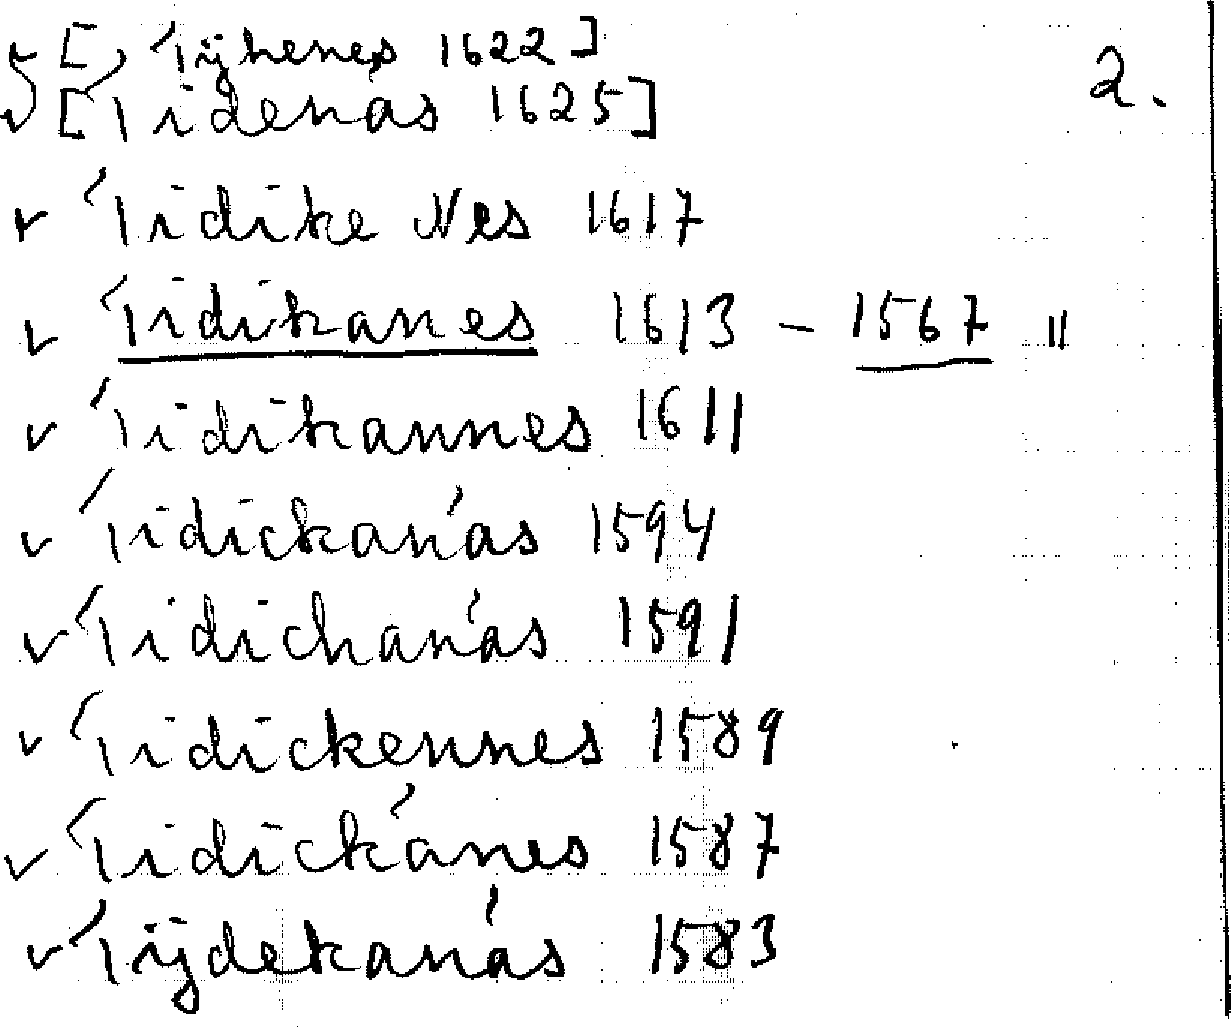 [Tijhenes 1622]
2.
[Tidenäs 1625]
Tidike Nes 1617
Tidikanes 1613 – 1567 "
Tidikannes 1611
Tidickanás 1594
Tidichanás 1591
Tidickennes 1589
Tidickánes 1587
Tijdekanás 1583